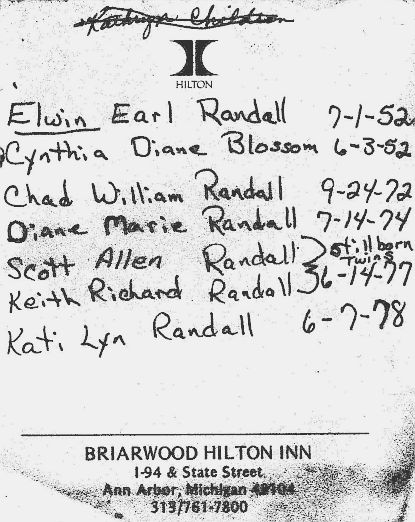 Kathryn Children
HILTON
Elwin Earl Randall 7-1-52
Cynthia Diane Blossom 6-3-52
Chad William Randall 9-24-72
Diane Marie Randall 7-14-74
Scott Allen Randall stillborn Twins
Keith Richard Randall 6-14-77
Kati Lyn Randall 6-7-78
BRIARWOOD HILTON INN
I-94 & State Street
Ann Arbor, Michigan 48104
313/761-7800